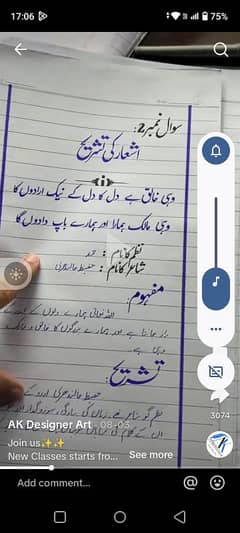 17:06
75%
سوال نمبر 2:
اشعار کی تشریح
وہی خالق ہے دل کا دل کے نیک ارادوں کا
وہی مالک ہمارا اور ہمارے باپ دادوں کا
نظم کا نام : حمد
شاعر کا نام : حفیظ جالندھری
مفہوم:
اللہ تعالیٰ ہمارے دلوں کے
جانتا ہے اور ہمارے بزرگوں کا خالق و مالک
وہی ہے
تشریح:
حفیظ جالندھری اردو کے
3074
AK Designer Art · 08-03
Join us✨✨
New Classes starts fro... See more
Add comment...